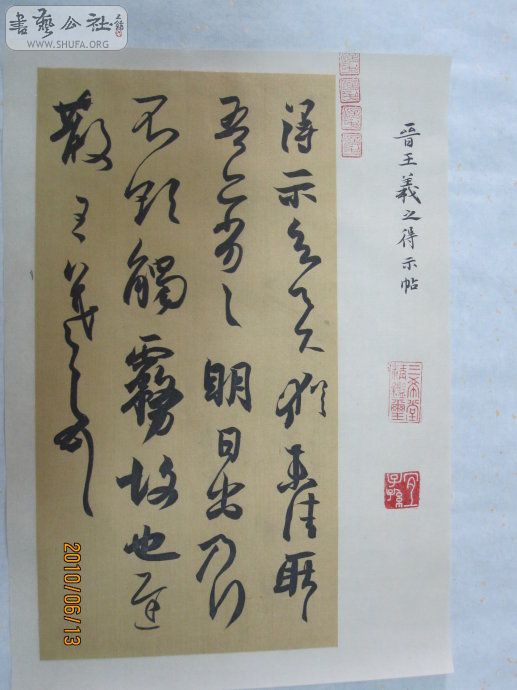 書藝公社
WWW.SHUFA.ORG
晉王羲之得示帖
三希堂精鑑璽
宜子孫
得示知足下猶未佳耿耿
吾亦劣劣明日出乃行
不欲觸霧故也遲
散王羲之頓首
2010/06/13